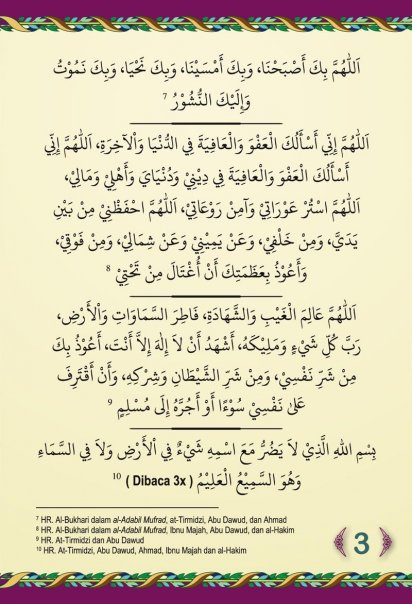 اَللّٰهُمَّ بِكَ أَصْبَحْنَا، وَبِكَ أَمْسَيْنَا، وَبِكَ نَحْيَا، وَبِكَ نَمُوْتُ
وَإِلَيْكَ النُّشُوْرُ 7
اَللّٰهُمَّ إِنِّي أَسْأَلُكَ الْعَفْوَ وَالْعَافِيَةَ فِي الدُّنْيَا وَاْلآخِرَةِ، اَللّٰهُمَّ إِنِّي
أَسْأَلُكَ الْعَفْوَ وَالْعَافِيَةَ فِي دِيْنِيْ وَدُنْيَايَ وَأَهْلِيْ وَمَالِيْ،
اَللّٰهُمَّ اسْتُرْ عَوْرَاتِيْ وَآمِنْ رَوْعَاتِيْ، اَللّٰهُمَّ احْفَظْنِيْ مِنْ بَيْنِ
يَدَيَّ، وَمِنْ خَلْفِيْ، وَعَنْ يَمِيْنِيْ وَعَنْ شِمَالِيْ، وَمِنْ فَوْقِيْ،
وَأَعُوْذُ بِعَظَمَتِكَ أَنْ أُغْتَالَ مِنْ تَحْتِيْ 8
اَللّٰهُمَّ عَالِمَ الْغَيْبِ وَالشَّهَادَةِ، فَاطِرَ السَّمَاوَاتِ وَاْلأَرْضِ،
رَبَّ كُلِّ شَيْءٍ وَمَلِيْكَهُ، أَشْهَدُ أَنْ لاَ إِلٰهَ إِلاَّ أَنْتَ، أَعُوْذُ بِكَ
مِنْ شَرِّ نَفْسِيْ، وَمِنْ شَرِّ الشَّيْطَانِ وَشِرْكِهِ، وَأَنْ أَقْتَرِفَ
عَلَى نَفْسِيْ سُوْءًا أَوْ أَجُرَّهُ إِلَى مُسْلِمٍ 9
بِسْمِ اللهِ الَّذِيْ لاَ يَضُرُّ مَعَ اسْمِهِ شَيْءٌ فِي اْلأَرْضِ وَلاَ فِي السَّمَاءِ
وَهُوَ السَّمِيْعُ الْعَلِيْمُ (Dibaca 3x) 10
7 HR. Al-Bukhari dalam al-Adabil Mufrad, at-Tirmidzi, Abu Dawud, dan Ahmad
8 HR. Al-Bukhari dalam al-Adabil Mufrad, Ibnu Majah, Abu Dawud, dan al-Hakim
9 HR. At-Tirmidzi dan Abu Dawud
10 HR. At-Tirmidzi, Abu Dawud, Ahmad, Ibnu Majah dan al-Hakim
3